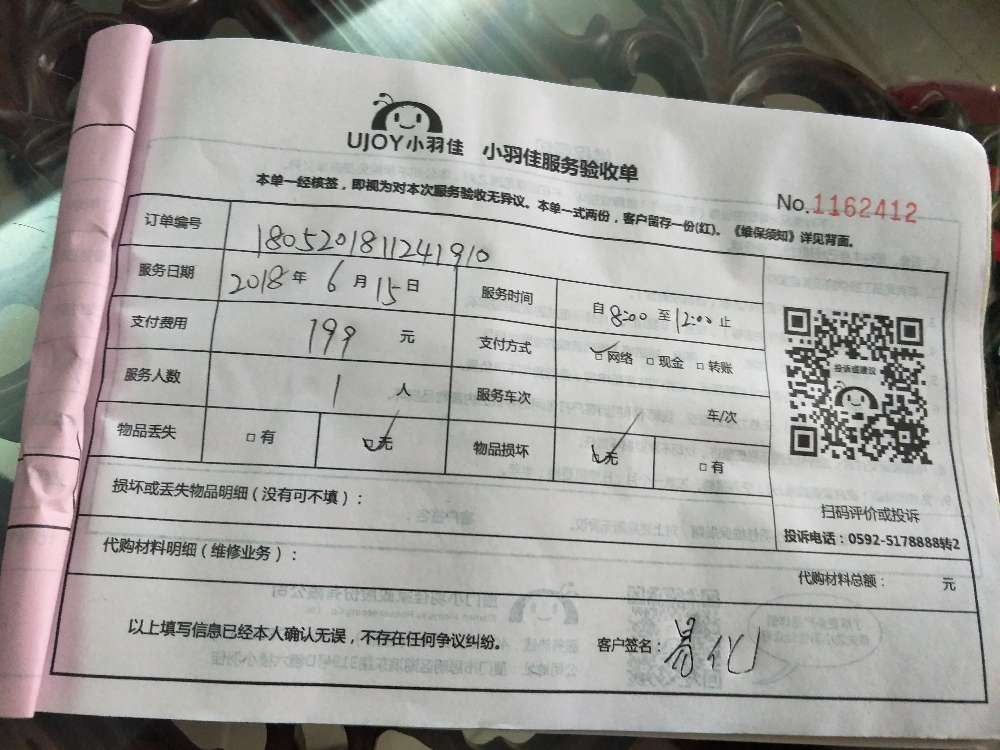 UJOY小羽佳 小羽佳服务验收单
本单一经核签，即视为对本次服务验收无异议。本单一式两份，客户留存一份(红)。《维保须知》详见背面。
No.1162412
订单编号 1805201811241910
服务日期 2018年6月15日 服务时间 自8:00至12:00止
支付费用 199元 支付方式 □网络 □现金 □转账
服务人数 1人 服务车次 车/次
物品丢失 □有 □无 物品损坏 □无 □有
投诉或建议
扫码评价或投诉
投诉电话：0592-5178888转2
损坏或丢失物品明细（没有可不填）：
代购材料明细（维修业务）：
代购材料总额： 元
以上填写信息已经本人确认无误，不存在任何争议纠纷。 客户签名：